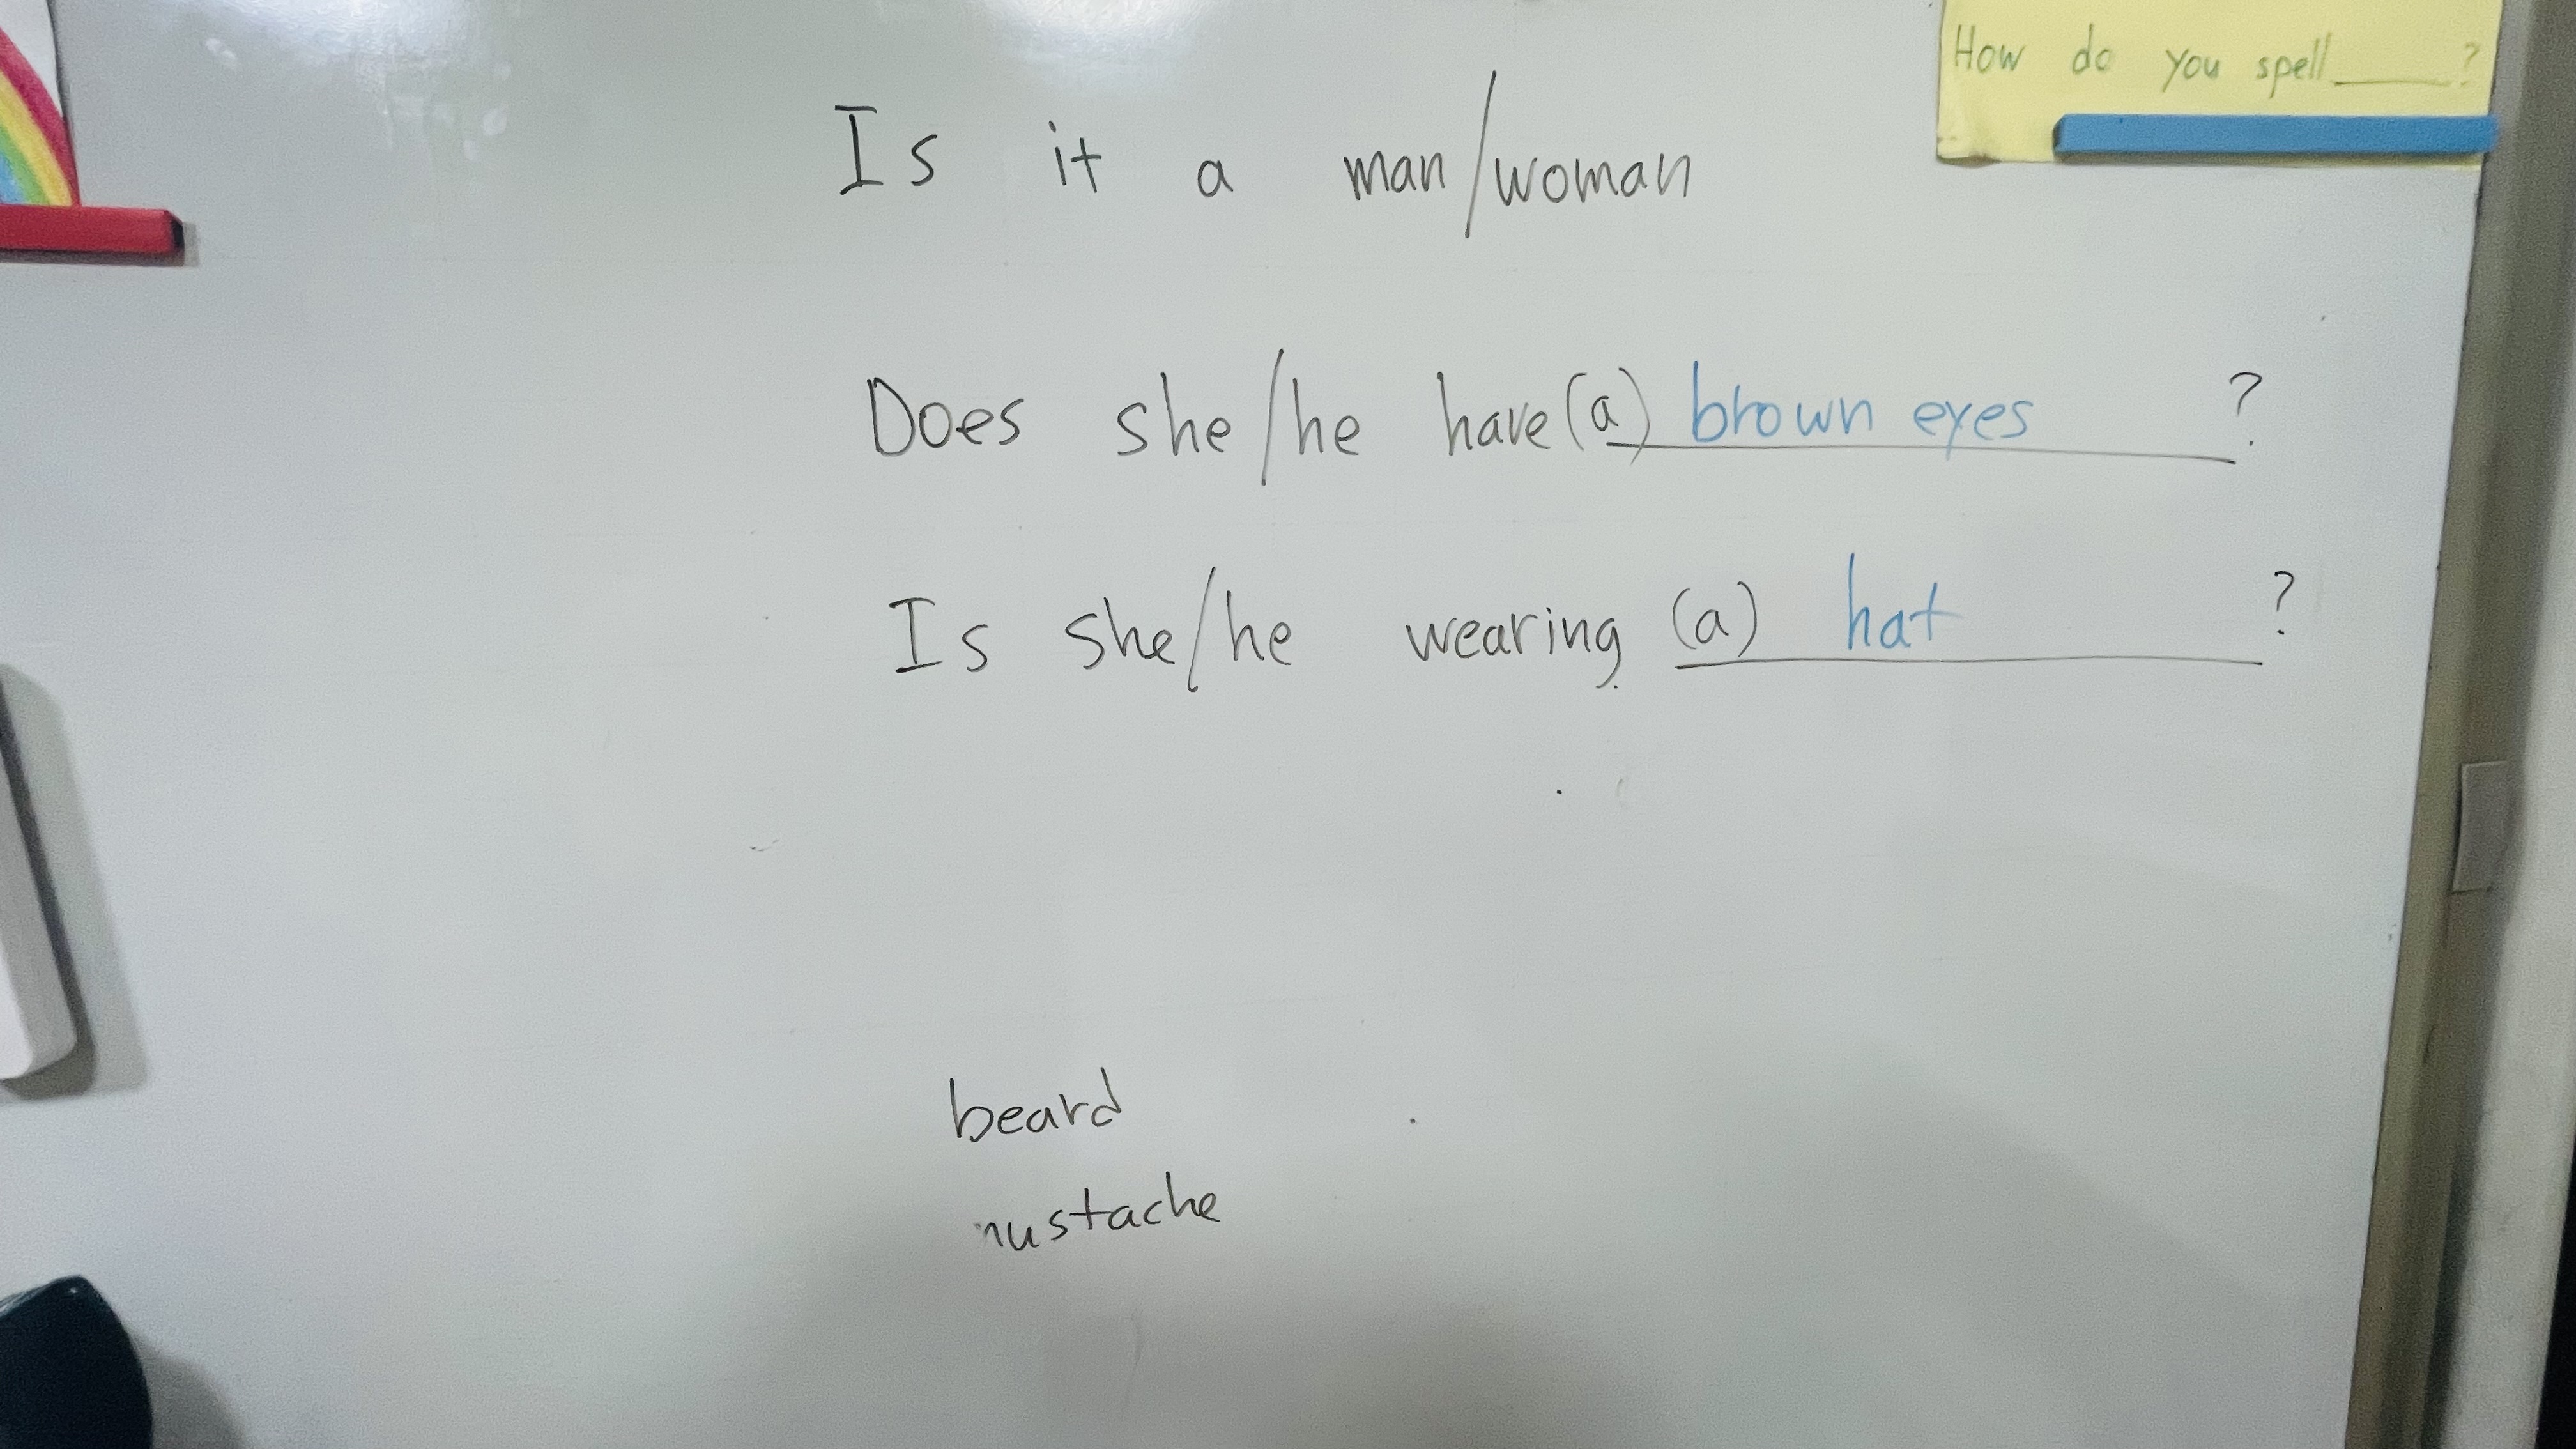 How do you spell____?
Is it a man/woman
Does she/he have (a) brown eyes?
Is she/he wearing (a) hat?
beard
mustache